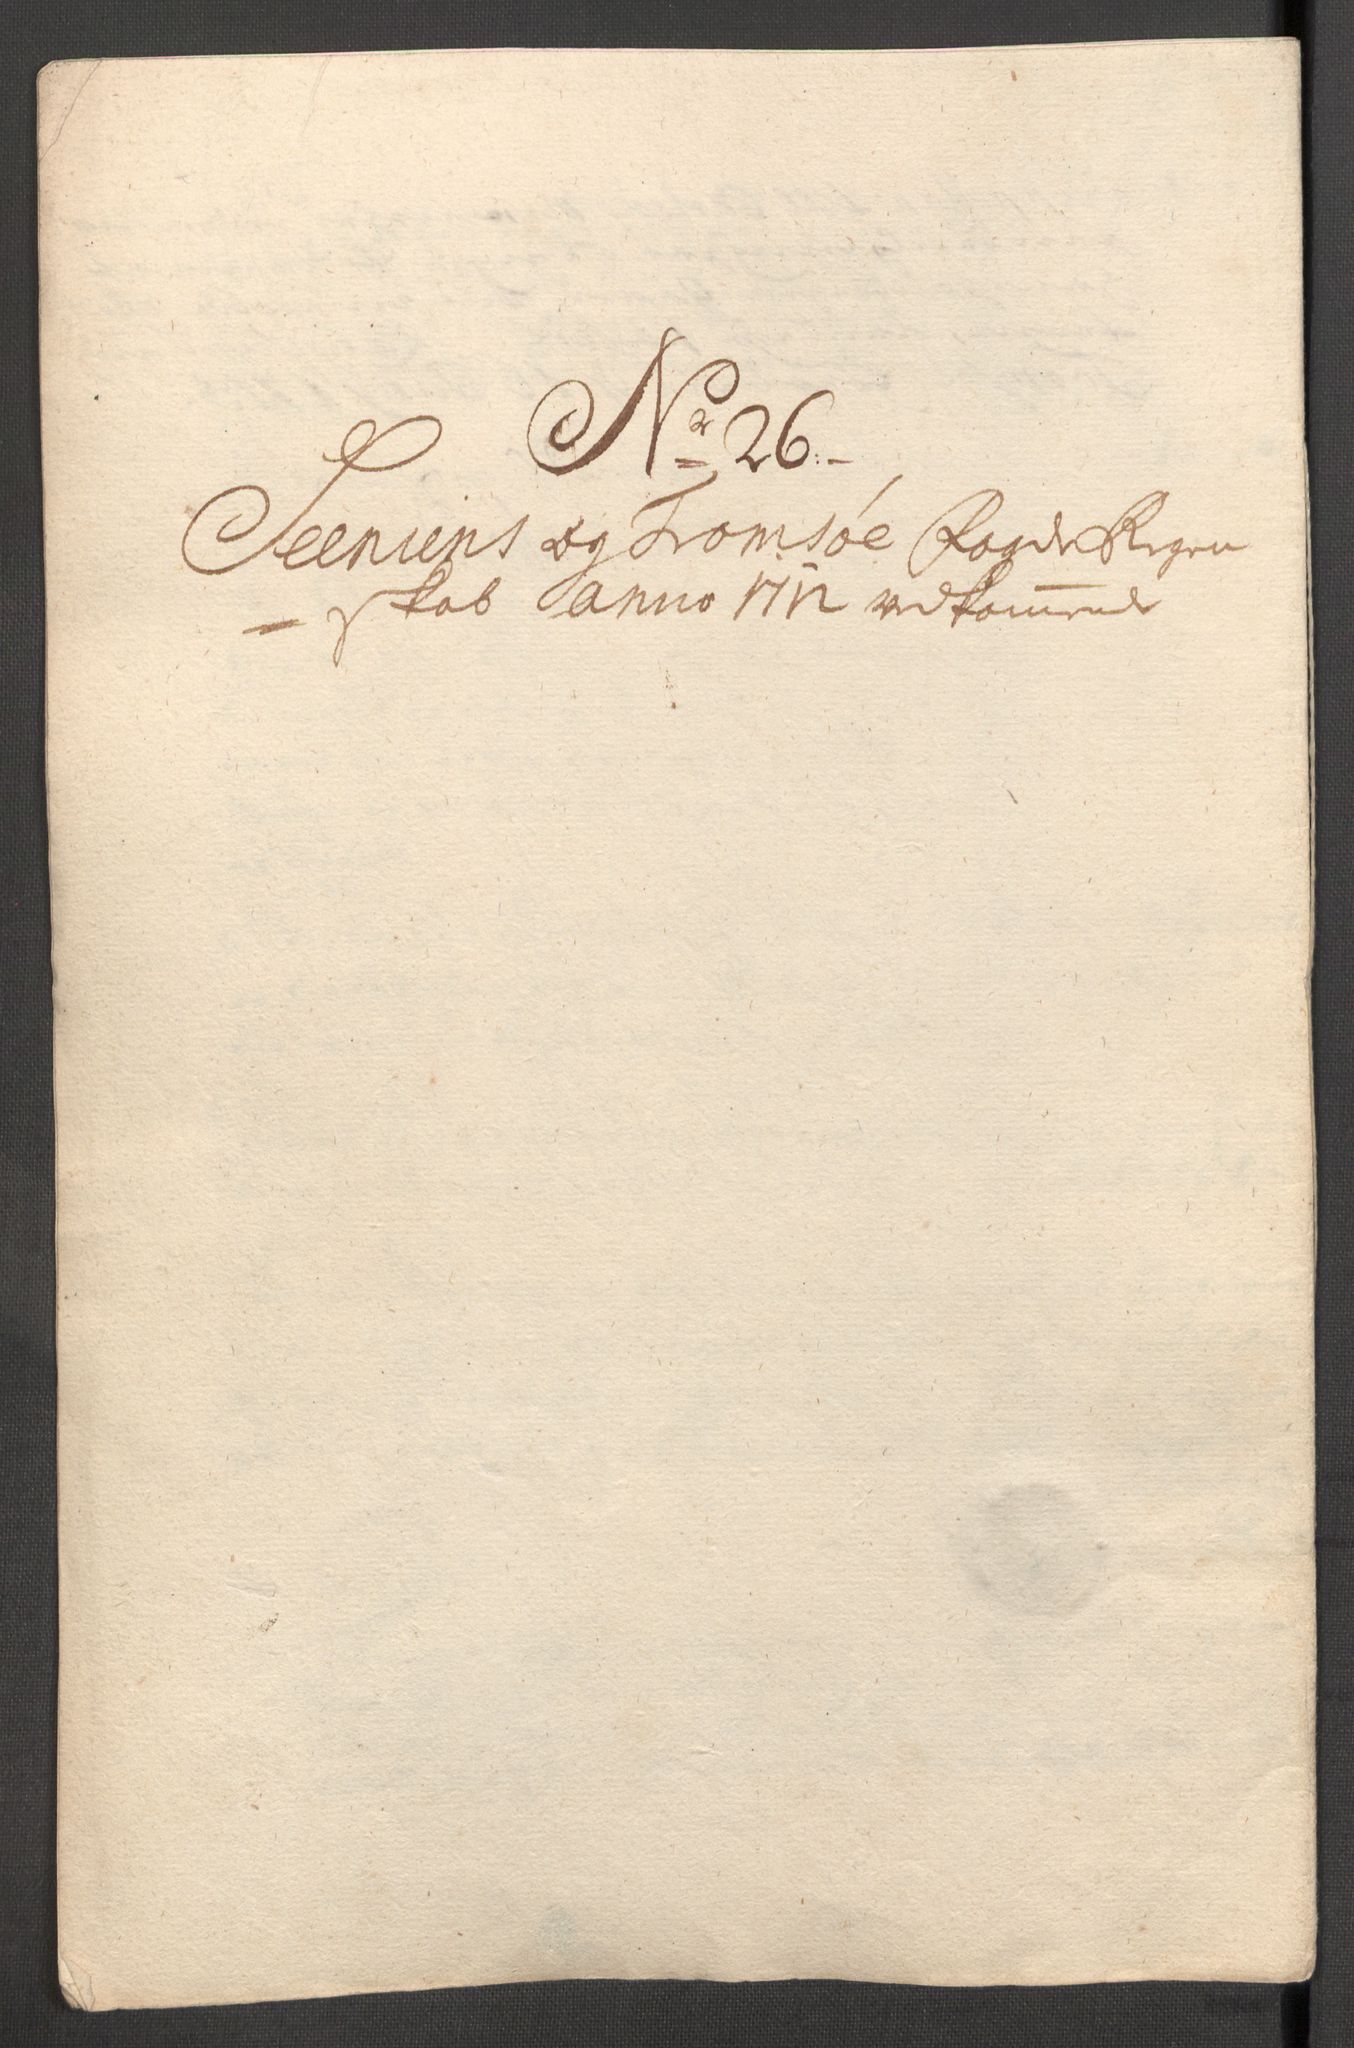 No 26.
Seeniens og Tromsøe Fogderi Regen
= skab anno 1712 vedkommende